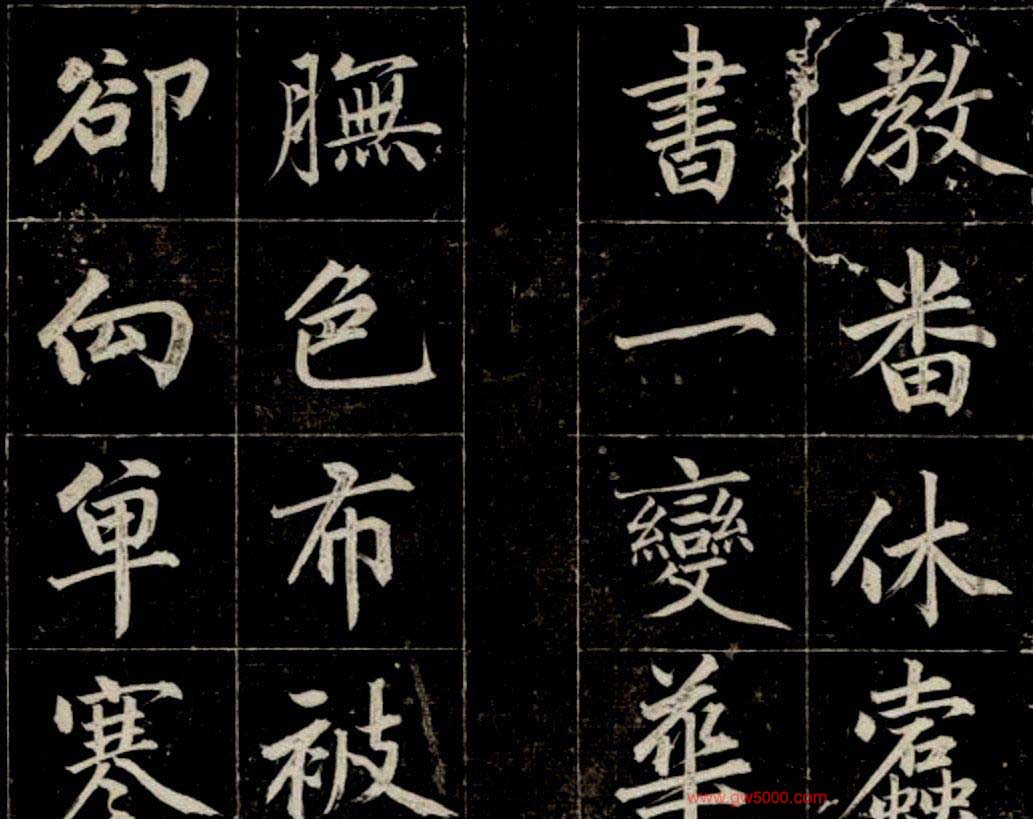 教番休蠹
書一變華
膴色布被
卻向單寒
www.gw5000.com